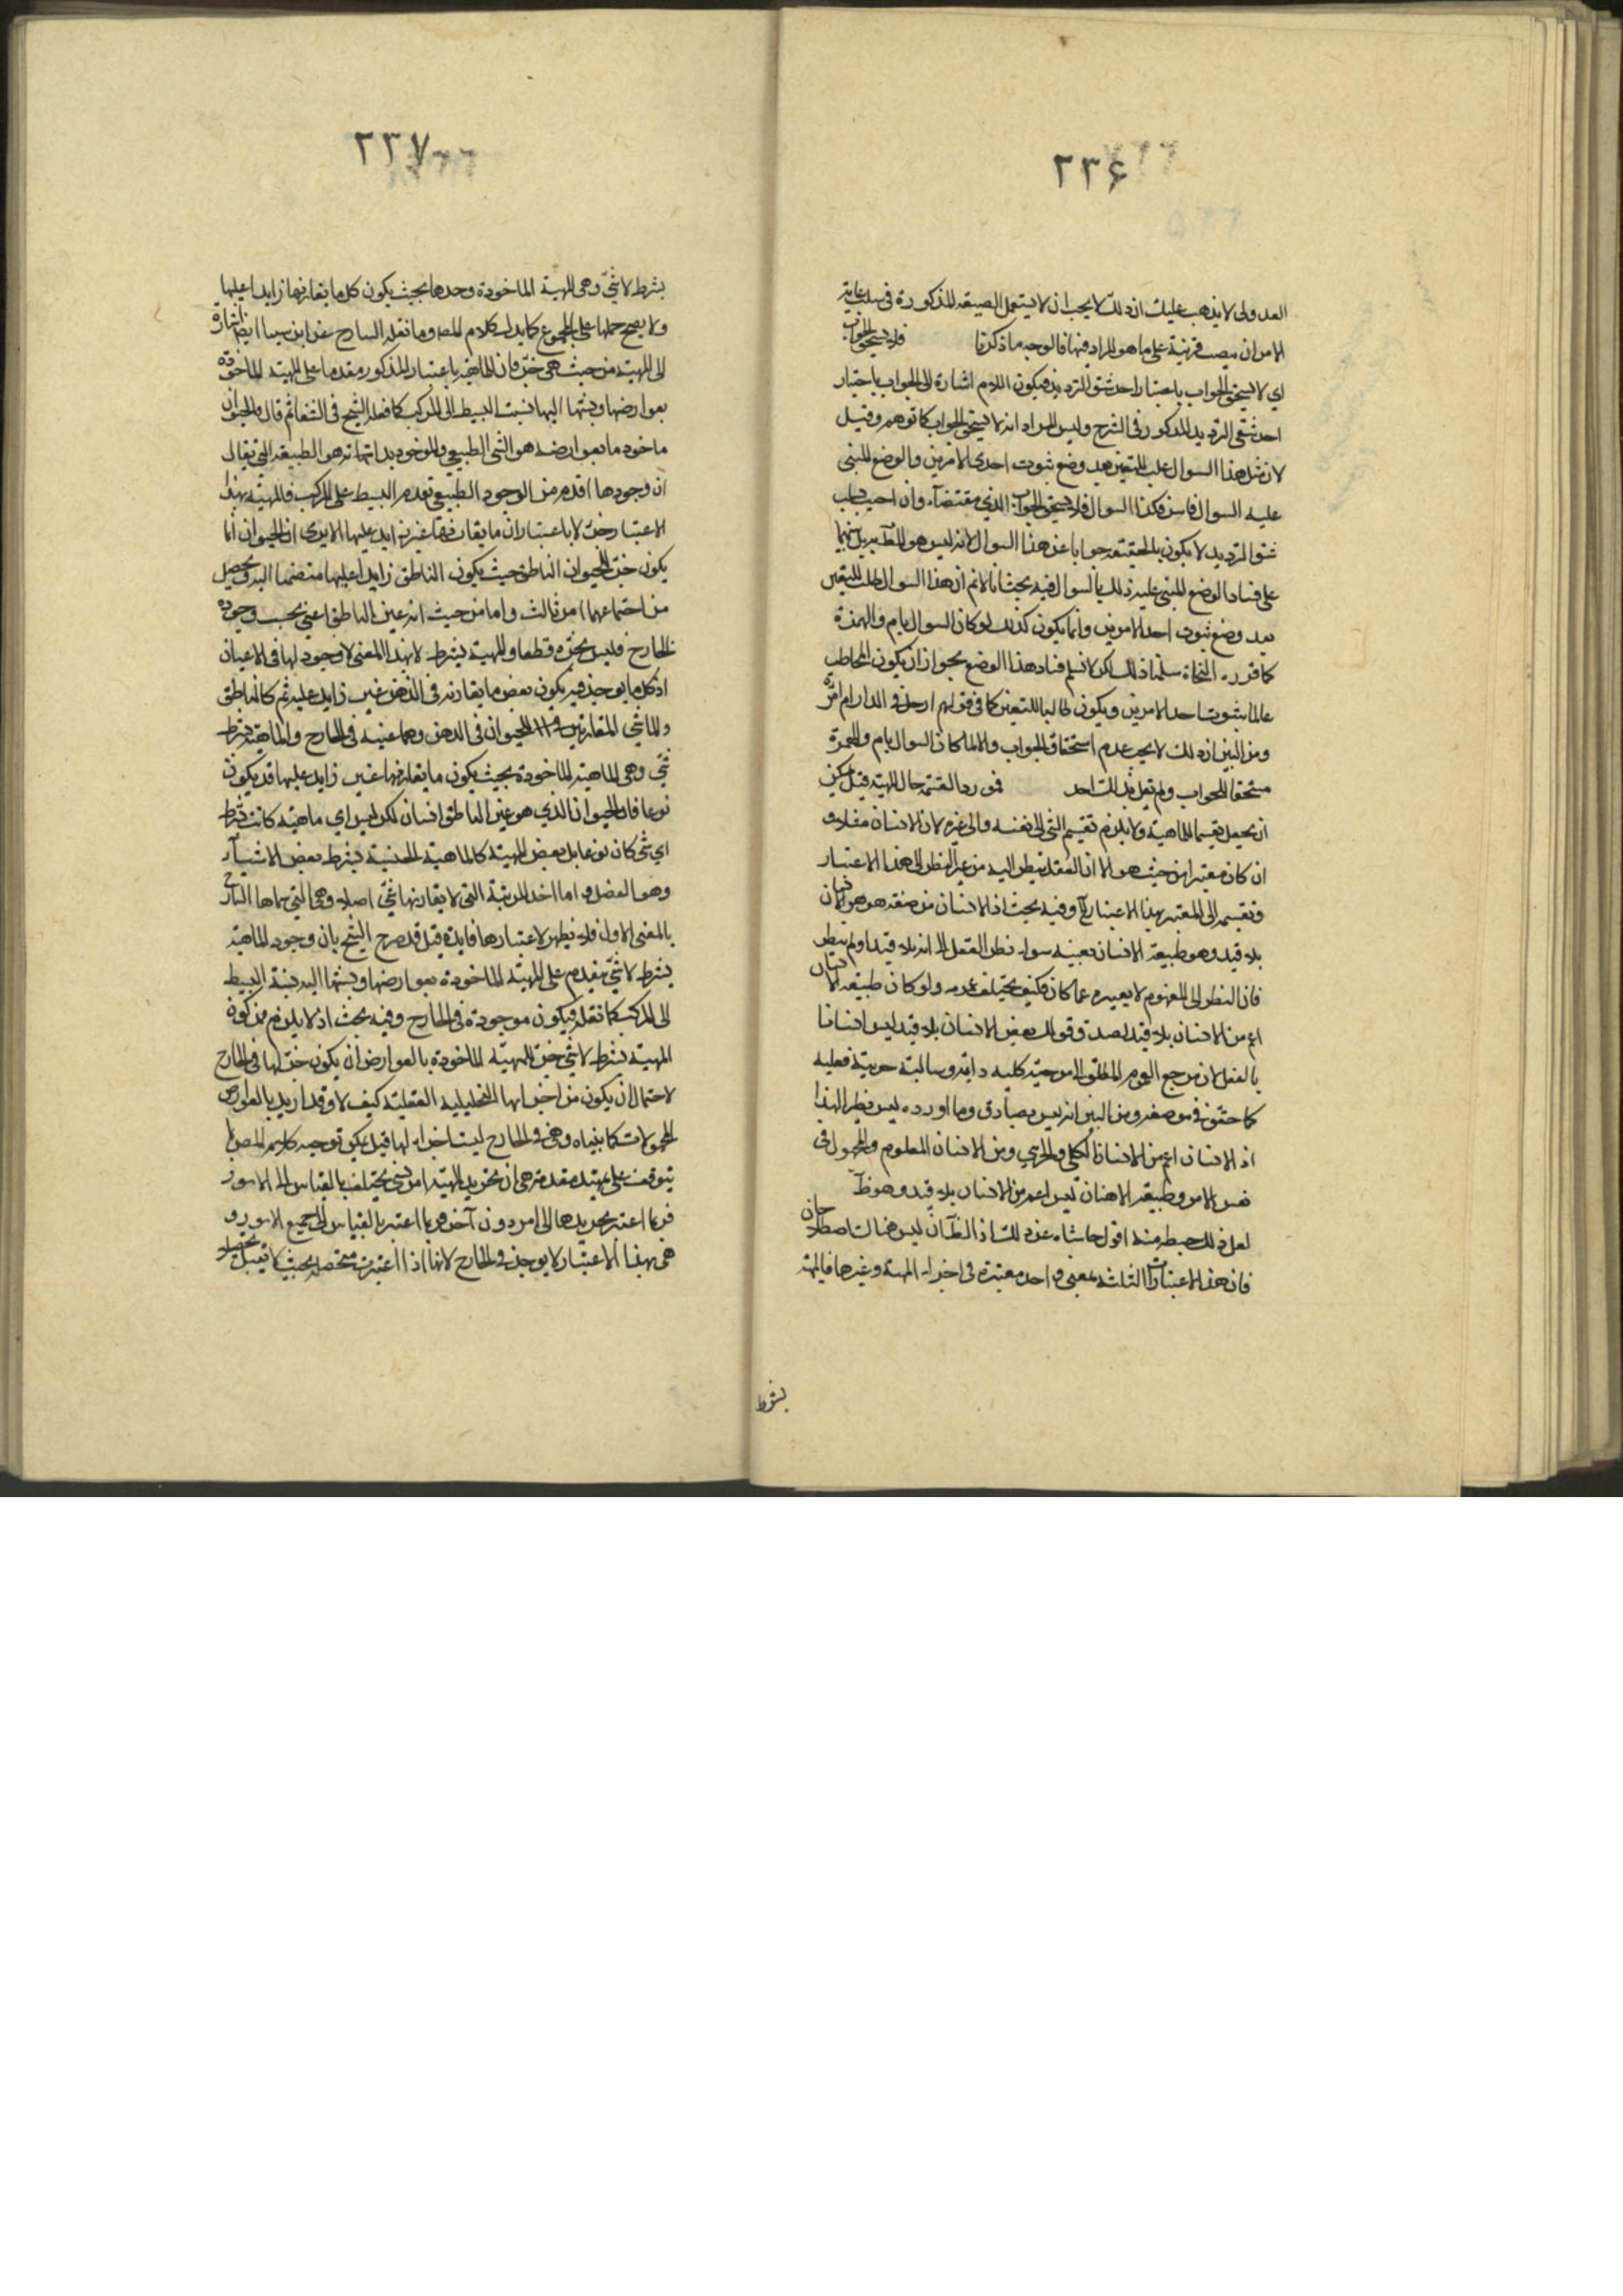 ٢٣۶
العدولى لا يذهب عليك ان ذلك لا يجب ان لا يستعمل الصيغة المذكورة فى سلب
الامر ان ينصب قرينة على ما هو المراد فيها فالوجه ما ذكرنا فلا يستحق الجواب
اي لا يستحق الجواب باعتبار احد شقى الترديد فيكون اللام اشارة الى الجواب باختيار
احد شقى الترديد المذكور فى الشرح وليس المراد انه لا يستحق الجواب كما توهم وقيل
لان مثل هذا السوال طلب التعين بعد وضع ثبوت احدى الامرين والوضع المبنى
عليه السوال فاسد فكذا السوال فلا يستحق الجواب الذي مقتضاه وان اجيب بسلب
شقى الترديد لا يكون بالحقيقة جوابا عن هذا السوال لانه ليس هو المعين بل تنبيها
على فساد الوضع المبنى عليه ذلك السوال فيه بحث انا لا نم ان هذا السوال طلب التعين
بعد وضع ثبوت احد الامرين وانما يكون كذلك لو كان السوال بام والهمزة
كما قرره النحاة سلمنا ذلك لكن لا نسلم فساد هذا الوضع بجواز ان يكون المخاطب
عالما بثبوت احد الامرين ويكون طالبا للتعين كما فى قولهم ارجل فى الدار ام امرأة
ومن البين ان ذلك لا يجب عدم استحقاق الجواب والا لما كان السوال بام والهمزة
مستحقا للجواب ولم يقل بذلك احد فورد القسمة حال المهية قيل يمكن
ان يجعل تقسيما للماهية ولا يلزم تقسيم الشى الى نفسه والى غيره لان الانسان مثلا و
ان كان معتبرا من حيث هو الا ان العقل ينظر اليه من غير النظر الى هذا الاعتبار
وتقسيمه الى المعتبر بهذا الاعتبار وفيه بحث اذ الانسان من حيث هو هو الانسان
بلا قيد وهو طبيعة الانسان بعينه سواء نظر العقل الى انه بلا قيد او لم ينظر
فان النظر الى المفهوم لا يغيره عما كان فكيف يختلف عمومه ولو كان طبيعة الانسان
اعم من الانسان بلا قيد لصدق قولك بعض الانسان بلا قيد ليس انسانا
بالفعل لان مرجع العموم المطلق الى موجبة كلية دايمة وسالبة جزئية فعلية
كما حقق فى موضعه ومن البين انه ليس بصادق وما اورده ليس نظيرا لهذا
اذ الانسان اعم من الانسان الكلى والجزئى ومن الانسان المعلوم والمجهول فى
نفس الامر وطبيعة الانسان ليس اعم من الانسان بلا قيد وهو ظ
لعل ذلك خبط منه اقول حاشاه عن ذلك اذ الظ ان ليس هناك اصطلاحان
فان هذه الاعتبارات الثلثة بمعنى واحد معتبرة فى اجزاء المهية وغيرها فالمهية
بشرط
٢٣٧
بشرط لا شئ وهى المهية الماخوذة وحدها بحيث يكون كل ما يقارنها زايدا عليها
ولا يصح حملها على المجموع كما يدل كلام المص وما نقله الشارح عن ابن سينا ايضا اشارة
الى المهية من حيث هى جزء فان الماهية باعتبار المذكور مقدما على المهية الماخوذة
بعوارضها ونسبتها اليها نسبت البسيط الى المركب كما فعله الشيخ فى الشفا ثم قال والحيوان
ماخوذ ما بعوارضه هو الشى الطبيعى والماخوذ بذاته هو الطبيعة التى يقال
ان وجودها اقدم من الوجود الطبيعى تقدم البسيط على المركب فالمهية بهذا
الاعتبار جزء لا باعتبار ان ما يقارنها غير زايد عليها الا يرى ان الحيوان انما
يكون جزء للحيوان الناطق حيث يكون الناطق زايدا عليها منضما اليه ويحصل
من اجتماعهما امر ثالث واما من حيث انه عين الناطق اعنى بحسب وجوده
الخارج فليس بجزء قطعا والمهية بشرط لا بهذا المعنى لا وجود لها فى الاعيان
اذ كل ما يوجد فيه يكون بعض ما يقارنه فى الذهن غير زايد عليه ثم كالناطق
والماشى المقارنين للحيوان فى الذهن وهما عينه فى الخارج والماهية بشرط
شئ وهى الماهية الماخوذة بحيث يكون ما يقارنها غير زايد عليها قد يكون
نوعا فان الحيوان الذي هو عين الناطق انسان لكن ليس اي ماهية كانت بشرط
اي شى كان نوعا بل بعض المهية كالماهية الجنسية بشرط بعض الاشياء
وهو الفصل واما اخذ المرتبة التى لا يقارنها شئ اصلا وهى التى سماها الشارح
بالمعنى الاول فلا يظهر لاعتبارها فايدة قيل قد صرح الشيخ بان وجود الماهية
بشرط لا شئ مقدم على المهية الماخوذة بعوارضها ونسبتها اليه نسبة البسيط
الى المركب كما نقله فيكون موجودة فى الخارج وفيه بحث اذ لا يلزم من كون
المهية بشرط لا شئ جزء المهية الماخوذة بالعوارض ان يكون جزء لها فى الخارج
لاحتمال ان يكون من اجزائها التحليلية العقلية كيف لا وقد اريد بالعوارض
المحمولات كما بيناه وهى فى الخارج ليست اجزاء لها قيل يمكن توجيه كلام المص
يتوقف على تمهيد مقدمة هى ان تجريد المهية امر نسبى يختلف بالقياس الى الامور
فربما اعتبر تجريدها الى امر دون آخر وربما اعتبر بالقياس الى جميع الامور و
هى بهذا الاعتبار لا يوجد فى الخارج لانها اذا اعتبرت متحصلة بحيث لا يقبل تحصيلا